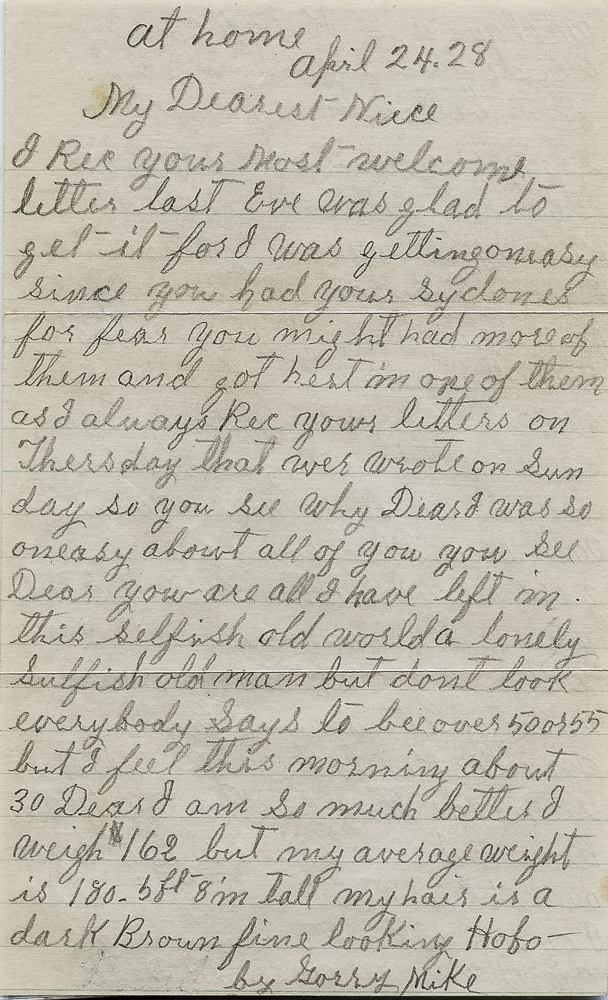 at home
April 24.28
My Dearest Niece
I Rec your most welcome
letter last Eve was glad to
get it for I was getting oneasy
since you had your Syclones
for fear you might had more of
them and got hert in one of them
as I always Rec your letters on
Thersday that wer wrote on Sun
day so you see why Dear I was so
oneasy about all of you you see
Dear you are all I have left in
this selfish old world a lonely
sulfish old man but dont look
everybody Says to bee over 50 or 55
but I feel this morning about
30 Dear I am so much better I
weigh 162 but my average weight
is 180. 5ft 8in tall my hair is a
dark Brown fine looking Hobo
by Gorry Mike